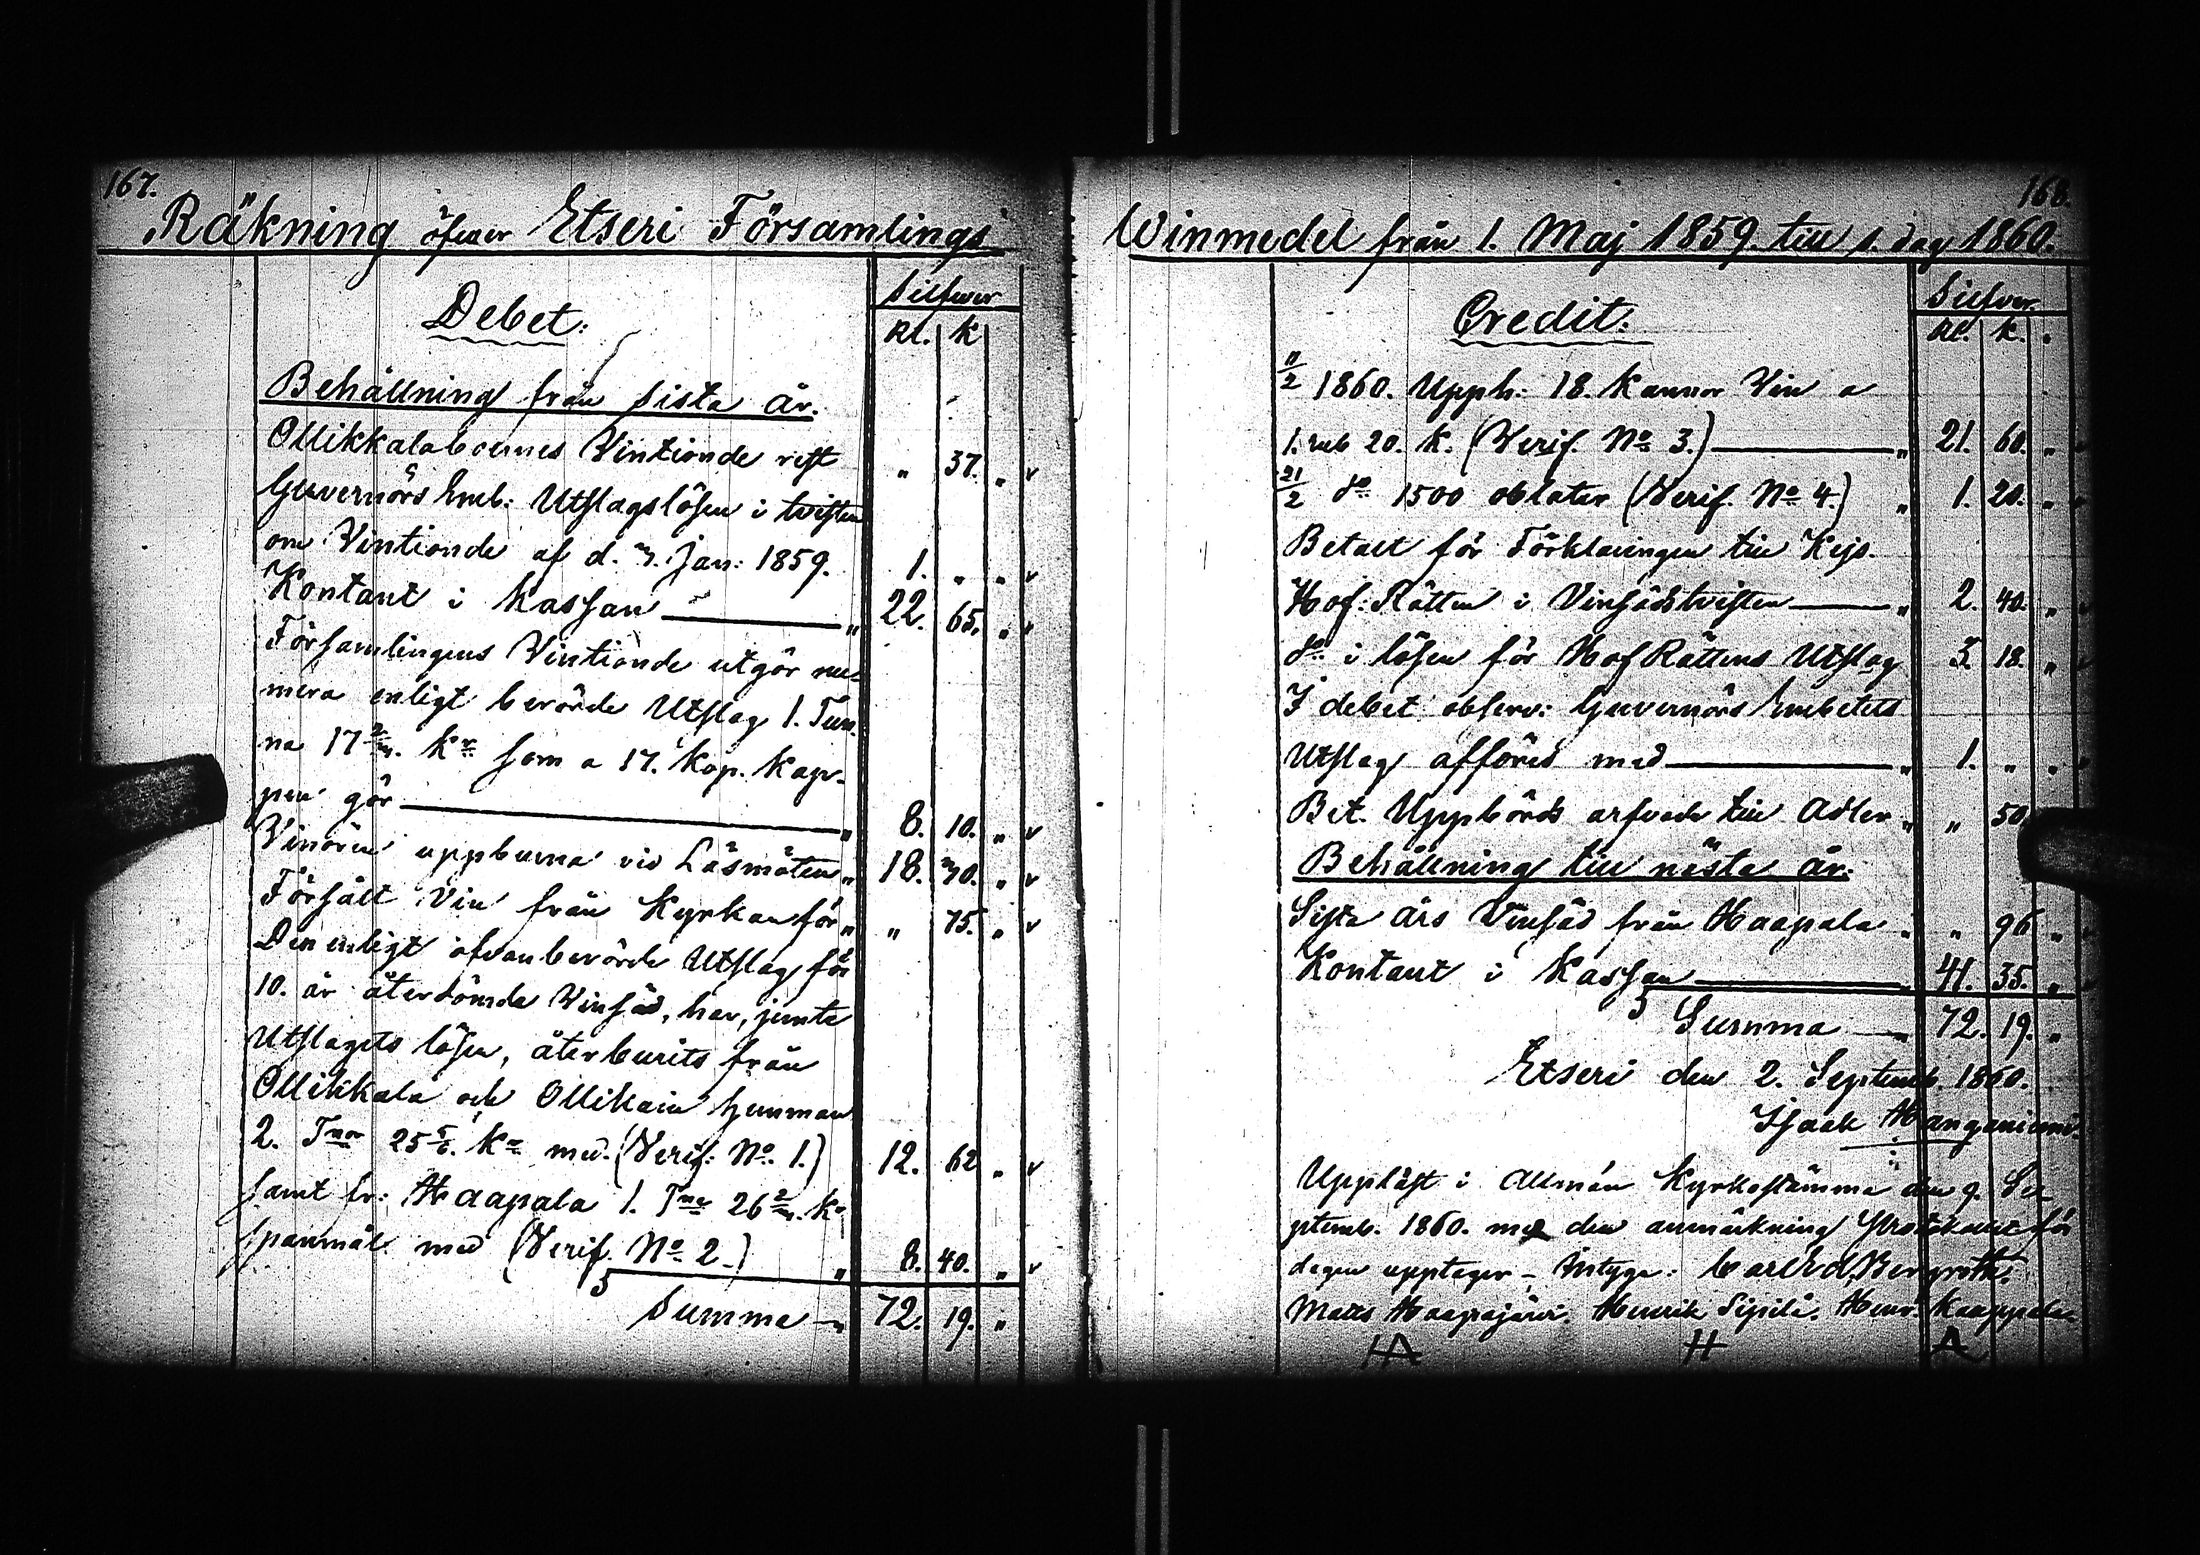 167.
Räkning öfwer Etseri Församlings
Debet:
Silfwer
Rl. k
Behållning från sista år.
Ollikkalaboernes Vintionde rest " 37. " v
Guvernörs Emb: Utslagslösen i tvisten
om Vintionde af d. 7. Jan: 1859. 1. " " v
Kontant i Kassan " 22. 65. " "
Församlingens Vintionde utgör nu-
mera enligt berörde Utslag 1. Tun-
na 17 2/7. kr som a 17. kop. kap-
pen gör " 8. 10. " v
Vinören uppburna vid Läsmöten " 18. 70. " v
Försålt Vin från Kyrkan för " " 75. " v
Den enligt ofvanberörde Utslag för
10. år återdömde Vinsäd, har, jemte
Utslagets lösen, återburits från
Ollikkala och Ollikain hemman
2. Tnor 25 5/6. kr med. (Verif: No. 1.) 12. 62 " v
samt fr: Haapala 1. Tna 26 2/7. kr
spanmål med (Verif. No 2.) " 8. 40. " v
Summa " 72. 19. "
168.
Winmedel från 1. Maj 1859. till s. dag 1860.
Credit:
Silfver.
Rl. k.
11/2 1860. Upph: 18. kannor Vin a
1. rub 20. k. (Verif. No 3.) " 21. 60. " "
21/2 do 1500 oblater (Verif. No 4.) " 1. 20. " "
Betalt för Förklaringen till Kejs.
Hof: Rätten i Vinsädstvisten " 2. 40. "
do i lösen för Hof Rättens Utslag 3. 18. "
I debet observ: Guvernörs Embetets
Utslag afföres med " 1. " "
Bet. Uppbörds arfvode till Adler " " 50
Behållning till näste år.
Sista års Vinsäd från Haapala " " 96 "
Kontant i Kassan " 41. 35. "
Summa " 72. 19. "
Etseri den 2. Septemb 1860.
Isaak Hanganiemi.
Uppläst i Allmän Kyrkostämma den 9. Se-
ptemb. 1860. med den anmärkning Protokollet för
dagen upptager – Intyga: Carl Ed. Bergroth.
Matts Haapajärvi. Henrik Sipilä. Henr. Kaappala.
HA H A